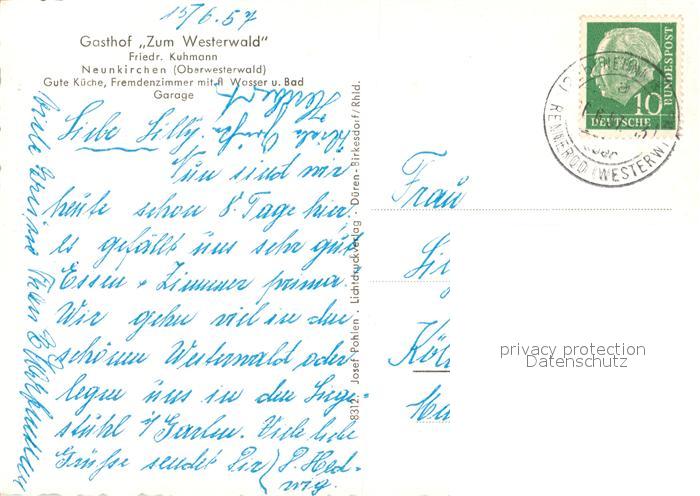 15/6.57
Gasthof „Zum Westerwald"
Friedr. Kuhmann
Neunkirchen (Oberwesterwald)
Gute Küche, Fremdenzimmer mit fl. Wasser u. Bad
Garage
Liebe Lilly.
Nun sind wir
heute schon 8 Tage hier.
es gefällt uns sehr gut
Essen + Zimmer prima.
Wir gehn viel in den
schönen Westerwald oder
legen uns in den Liege-
stühl i/Garten. Viele liebe
Grüsse sendet Dir
Hed-
wig.
Herbert
Viele Grüsse
8312. Josef Pohlen. Lichtdruckverlag · Düren-Birkesdorf/Rhld.
10
DEUTSCHE
BUNDESPOST
RENNEROD (WESTERW
Frau
Köln
privacy protection
Datenschutz